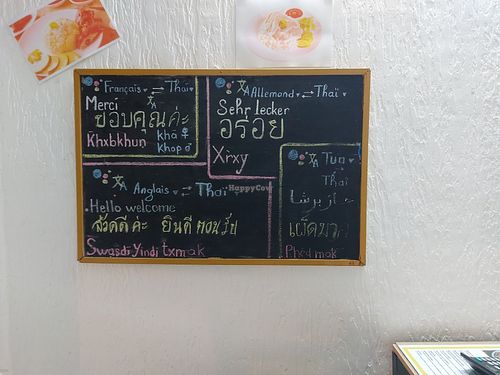 Français ⇄ Thaï
Merci
ขอบคุณค่ะ
Khxbkhun
Khâ ♀
Khop ♂
Allemand ⇄ Thaï
Sehr lecker
อร่อย
Xrxy
Anglais ⇄ Thaï
Hello welcome
สวัสดีค่ะ ยินดีตอนรับ
Swasdi Yindi txmak
Thaï
เผ็ดมาก
Phed mak
HappyCow